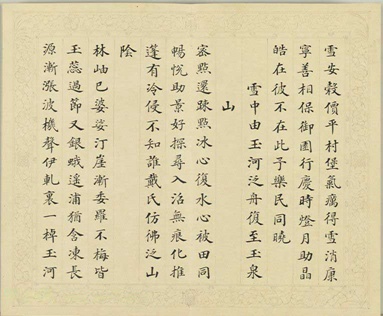 雪安穀價平村堡氣癘得雪消康
寧善相保御園行慶時燈月助晶
皓在彼不在此予樂民同曉
雪中由玉河泛舟復至玉泉
山
密點還疎點冰心復水心被田同
暢悅助景好探尋入沼無痕化推
蓬有冷侵不知誰戴氏仿佛泛山
陰
林岫已婆娑汀崖漸委羅不梅皆
玉蕊過節又銀蛾遙浦猶含凍長
源漸漲波機聲伊軋裏一棹玉河